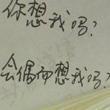 你想我吗?
会偶而想我吗?